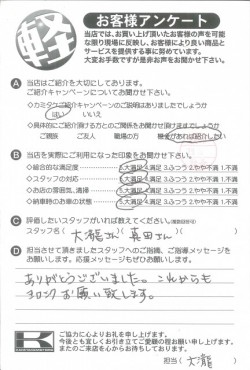 軽
お客様アンケート
当店では、お買い上げ頂いたお客様の声を可能
な限り現場に反映し、お客様により良い商品と
サービスを提供する事に努めています。
大変お手数ですが是非お声をお聞かせ下さい。
A 当店はご紹介を大切にしております。
ご紹介キャンペーンについてお聞かせ下さい。
はい いいえ
ご親戚 ご友人 職場の方
B 当店を実際にご利用になった印象をお聞かせ下さい。
総合的な満足度 5.大満足 4.満足 3.ふつう 2.やや不満 1.不満
スタッフの対応 5.大満足 4.満足 3.ふつう 2.やや不満 1.不満
お店の雰囲気、清掃 5.大満足 4.満足 3.ふつう 2.やや不満 1.不満
納車時のお車の状態 5.大満足 4.満足 3.ふつう 2.やや不満 1.不満
C 評価したいスタッフがいれば教えてください。
スタッフ名( 大瀧さん 真田さん )
D 担当させて頂きましたスタッフへのご指摘、ご指導メッセージを
お願いします。応援メッセージもぜひお願いします。
ありがとうございました。これからも
ヨロシクお願い致します。
K
ご協力に心よりお礼を申し上げます。
今後とも宜しくお引き立てご愛顧の程お願い申し上げます。
またのご来店を心からお待ちしております。
担当( 大瀧 )